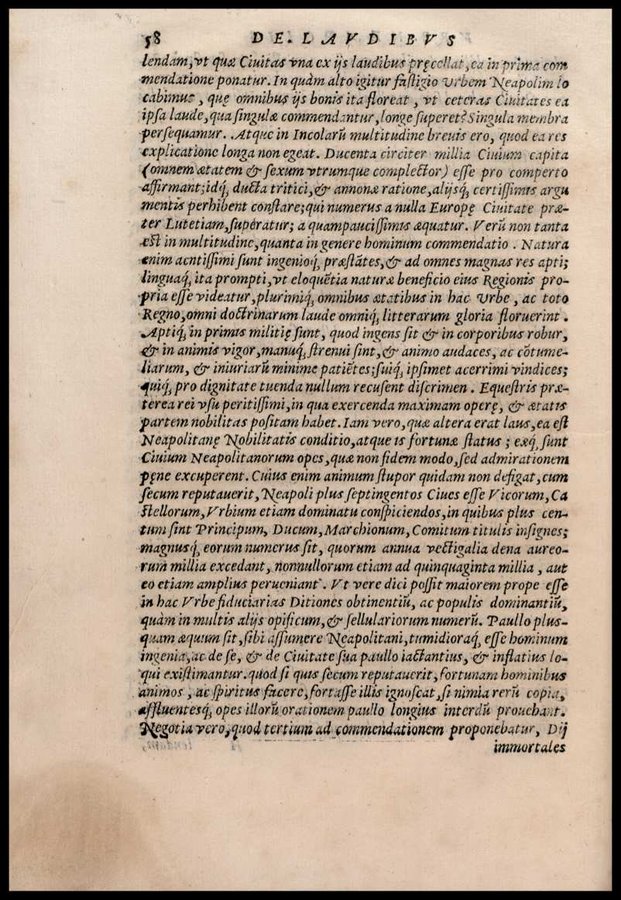 58 DE LAVDIBVS
lendam, vt quæ Ciuitas vna ex ijs laudibus pręcellat, ea in prima com
mendatione ponatur. In quàm alto igitur fastigio Vrbem Neapolim lo
cabimus, quę omnibus ijs bonis ita floreat, vt ceteras Ciuitates ea
ipsa laude, qua singulæ commendantur, longe superet? Singula membra
persequamur. Atque in Incolarũ multitudine breuis ero, quod ea res
explicatione longa non egeat. Ducenta circiter millia Ciuium capita
(omnem ætatem & sexum vtrumque complector) esse pro comperto
affirmant; idq́, ducta tritici, & annonæ ratione, alijsq́, certissimis argu
mentis perhibent constare; qui numerus a nulla Europę Ciuitate præ-
ter Lutetiam, superatur; a quampaucissimis æquatur. Verũ non tanta
est in multitudine, quanta in genere hominum commendatio. Natura
enim acutissimi sunt ingenioq́, præstãtes, & ad omnes magnas res apti;
linguaq́, ita prompti, vt eloquẽtia naturæ beneficio eius Regionis pro-
pria esse videatur, plurimiq́, omnibus ætatibus in hac Vrbe, ac toto
Regno, omni doctrinarum laude omniq́, litterarum gloria floruerint.
Aptiq́, in primis militię sunt, quod ingens sit & in corporibus robur,
& in animis vigor, manuq́, strenui sint, & animo audaces, ac cõtume-
liarum, & iniuriarũ minime patiẽtes; suiq́, ipsimet acerrimi vindices;
quiq́, pro dignitate tuenda nullum recusent discrimen. Equestris præ-
terea rei vsu peritissimi, in qua exercenda maximam operę, & ætatis
partem nobilitas positam habet. Iam vero, quæ altera erat laus, ea est
Neapolitanę Nobilitatis conditio, atque is fortunæ status; eæq́, sunt
Ciuium Neapolitanorum opes, quæ non fidem modo, sed admirationem
pęne excuperent. Cuius enim animum stupor quidam non defigat, cum
secum reputauerit, Neapoli plus septingentos Ciues esse Vicorum, Ca
stellorum, Vrbium etiam dominatu conspiciendos, in quibus plus cen-
tum sint Principum, Ducum, Marchionum, Comitum titulis insignes;
magnusq́, eorum numerus sit, quorum annua vectigalia dena aureo-
rum millia excedant, nonnullorum etiam ad quinquaginta millia, aut
eo etiam amplius perueniant. Vt vere dici possit maiorem prope esse
in hac Vrbe fiduciarias Ditiones obtinentiũ, ac populis dominantiũ,
quàm in multis alijs opificum, & sellulariorum numerũ. Paullo plus-
quam æquum sit, sibi assumere Neapolitani, tumidioraq́, esse hominum
ingenia, ac de se, & de Ciuitate sua paullo iactantius, & inflatius lo-
qui existimantur. quod si quis secum reputauerit, fortunam hominibus
animos, ac spiritus facere, fortasse illis ignoscat, si nimia rerũ copia,
affluentesq́, opes illorũ orationem paullo longius interdũ prouehant.
Negotia vero, quod tertium ad commendationem proponebatur, Dij
immortales